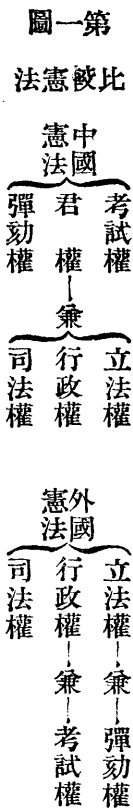 第一圖
比較憲法
中國憲法
考試權
君權——兼
彈劾權
立法權
行政權
司法權
外國憲法
立法權——兼——彈劾權
行政權——兼——考試權
司法權